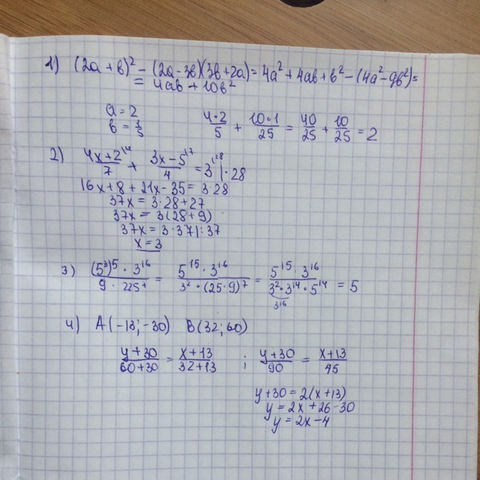 1) (2a + b)² - (2a - 3b)(3b + 2a) = 4a² + 4ab + b² - (4a² - 9b²) =
= 4ab + 10b²
a = 2
b = 1/5
4·2/5 + 10·1/25 = 40/25 + 10/25 = 2
2) 4x+2/7 + 3x-5/4 = 3 | · 28
16x + 8 + 21x - 35 = 3·28
37x = 3·28 + 27
37x = 3(28 + 9)
37x = 3·37 | : 37
x = 3
3) (5³)⁵ · 3¹⁶ / 9 · 225⁷ = 5¹⁵ · 3¹⁶ / 3² · (25·9)⁷ = 5¹⁵ · 3¹⁶ / 3² · 3¹⁴ · 5¹⁴ = 5
3¹⁶
4) A(-13; -30) B(32; 60)
y+30/60+30 = x+13/32+13 ; y+30/90 = x+13/45
y + 30 = 2(x + 13)
y = 2x + 26 - 30
y = 2x - 4